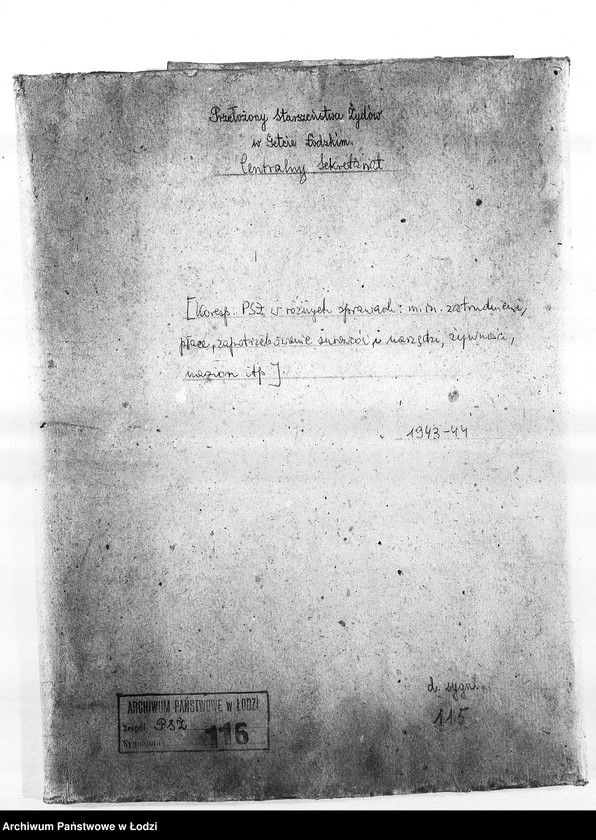 Przełożony Starszeństwa Żydów
w Getcie Łodzkim.
Centralny Sekretariat
[Koresp. PSŻ w różnych sprawach: m.in. zatrudnienie,
płace, zapotrzebowanie surowców i narzędzi, żywności,
nasion itp].
1943-44
d. sygn.
115
ARCHIWUM PAŃSTWOWE w ŁODZI
Zespół PSŻ
Sygnatura 116
Archiwum Państwowe w Łodzi